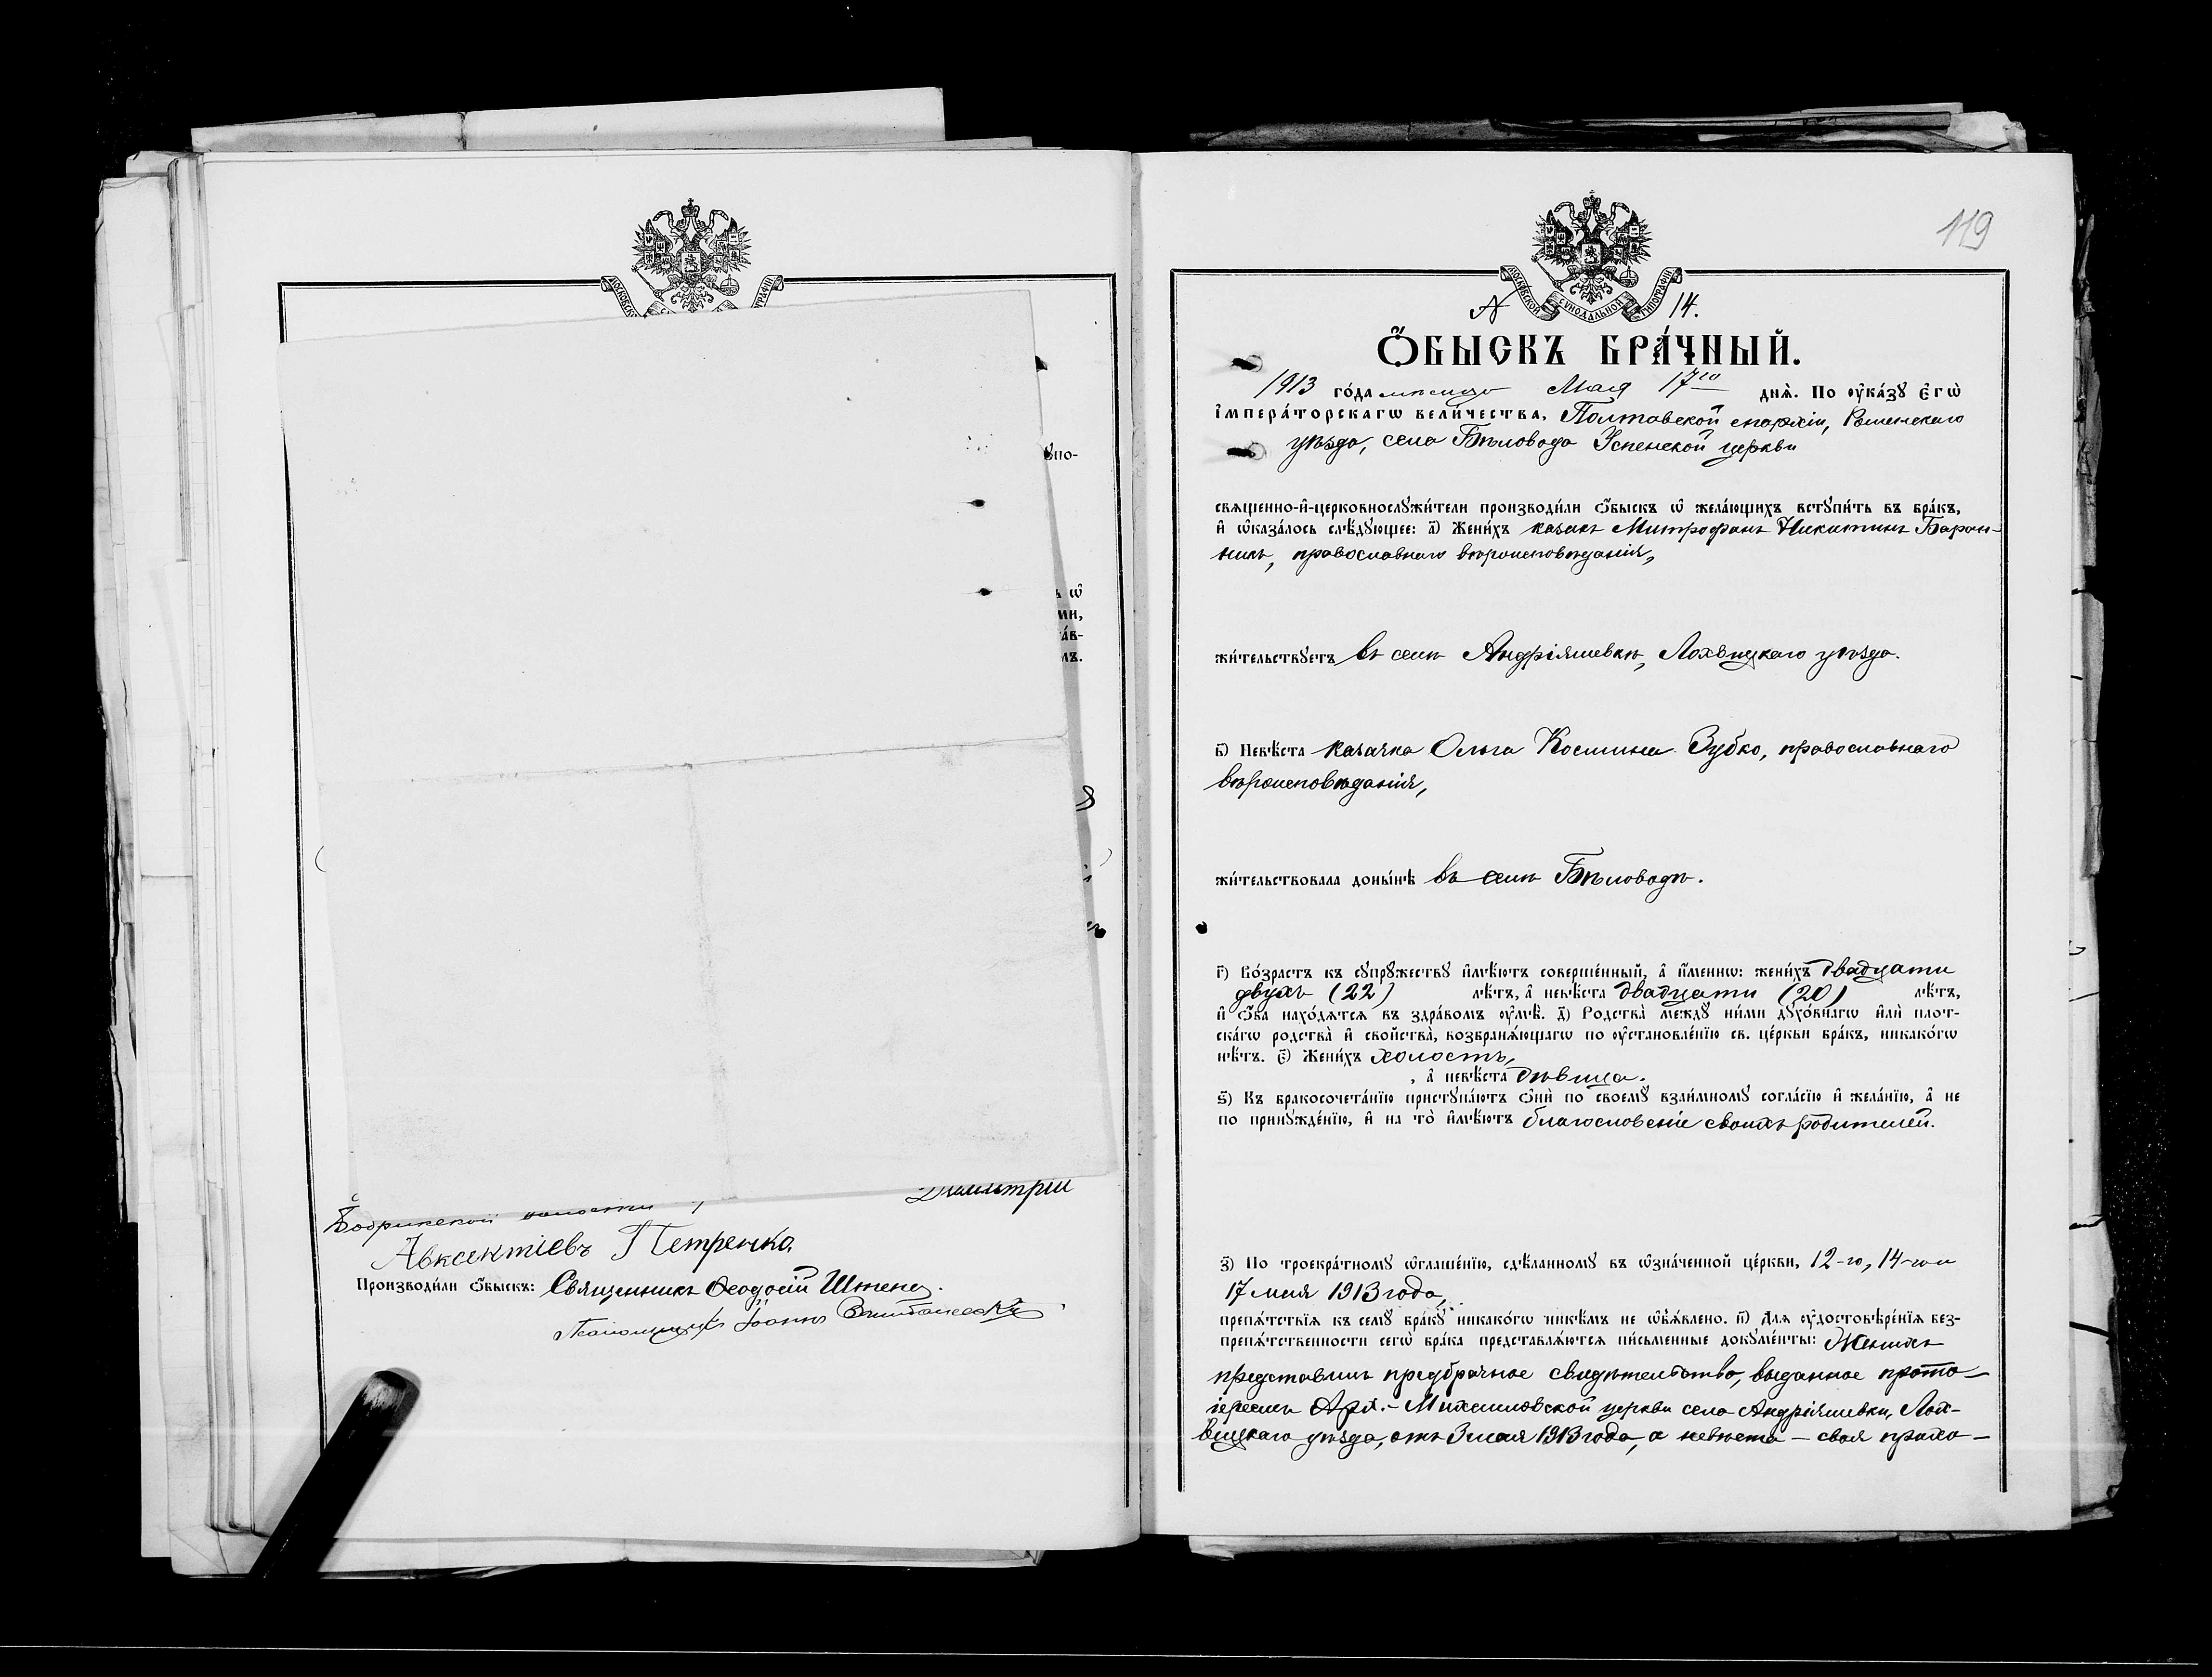 Димитрій
Бобрикской волости
Авксентіевъ Петренко.
Произвoди́ли ѻ҆́быскъ: Священникъ Ѳеодосій
Псаломщикъ Іоаннъ
119
№ 14.
МОСКОВСКОЙ СѴНОДАЛЬНОЙ ТИПОГРАФІИ
Ѻ҆́БЫСКЪ БРА́ЧНЫЙ.
1913 го́да мѣсяца Мая 17го дня̀. По ᲂу҆ка́зꙋ є҆гѡ̀
і҆мпера́торскагѡ вели́чества, Полтавской епархіи, Роменскаго
уѣзда, села Бѣловода Успенской церкви
свѧщенно-и҆-церковнослꙋжи́тели производи́ли ѻ҆́быскъ ѡ҆ жела́ющихъ встꙋпи́ть въ бра́къ,
и҆ ѡ҆каза́лось слѣ́дꙋющее: а҃) Жени́хъ казакъ Митрофанъ Никитинъ Баран-
никъ, православнаго вѣроисповѣданія,
жи́тельствꙋетъ въ селѣ Андріяшевкѣ, Лохвицкаго уѣзда.
в҃) Невѣ́ста казачка Ольга Космина Зубко, православнаго
вѣроисповѣданія,
жи́тельствовала доны́нѣ въ селѣ Бѣловодѣ.
г҃) Во́зрастъ къ сꙋпрꙋ́жествꙋ и҆мѣ́ютъ соверше́нный, а҆ и҆́меннѡ: жени́хъ двадцати
двухъ (22) лѣ́тъ, а҆ невѣ́ста двадцати (20) лѣ́тъ,
и҆ ѻ҆́ба нахо́дѧтсѧ въ здра́вомъ ᲂу҆мѣ̀. д҃) Родства̀ междꙋ ни́ми дꙋхо́внагѡ и҆лѝ плот-
ска́гѡ родства̀ и҆ свойства̀, возбранѧ́ющагѡ по ᲂу҆становле́нїю св. це́ркви бра́къ, никако́гѡ
нѣ́тъ. є҃) Жени́хъ холостъ,
, а҆ невѣ́ста дѣвица.
ѕ҃) Къ бракосочета́нїю пристꙋпа́ютъ ѻ҆нѝ по своемꙋ̀ взаи́мномꙋ согла́сїю и҆ жела́нїю, а҆ не
по принꙋжде́нїю, и҆ на то̀ и҆мѣ́ютъ благословеніе своихъ родителей.
з҃) По троекра́тномꙋ ѡ҆глаше́нїю, сдѣ́ланномꙋ въ ѡ҆зна́ченной це́ркви, 12-го, 14-го и
17 мая 1913 года,
препѧ́тствїѧ къ семꙋ̀ бра́кꙋ никако́гѡ никѣ́мъ не ѡ҆б̾ѧ́влено. и҃) Длѧ ᲂу҆достовѣре́нїѧ без-
препѧ́тственности сегѡ̀ бра́ка представлѧ́ютсѧ пи́сьменные докꙋме́нты: Женихъ
представилъ предбрачное свидѣтельство, выданное прото-
іереемъ Арх.-Михаиловской церкви села Андріяшевки, Лох-
вицкаго уѣзда, отъ 3 мая 1913 года, а невѣста — своя прихо-